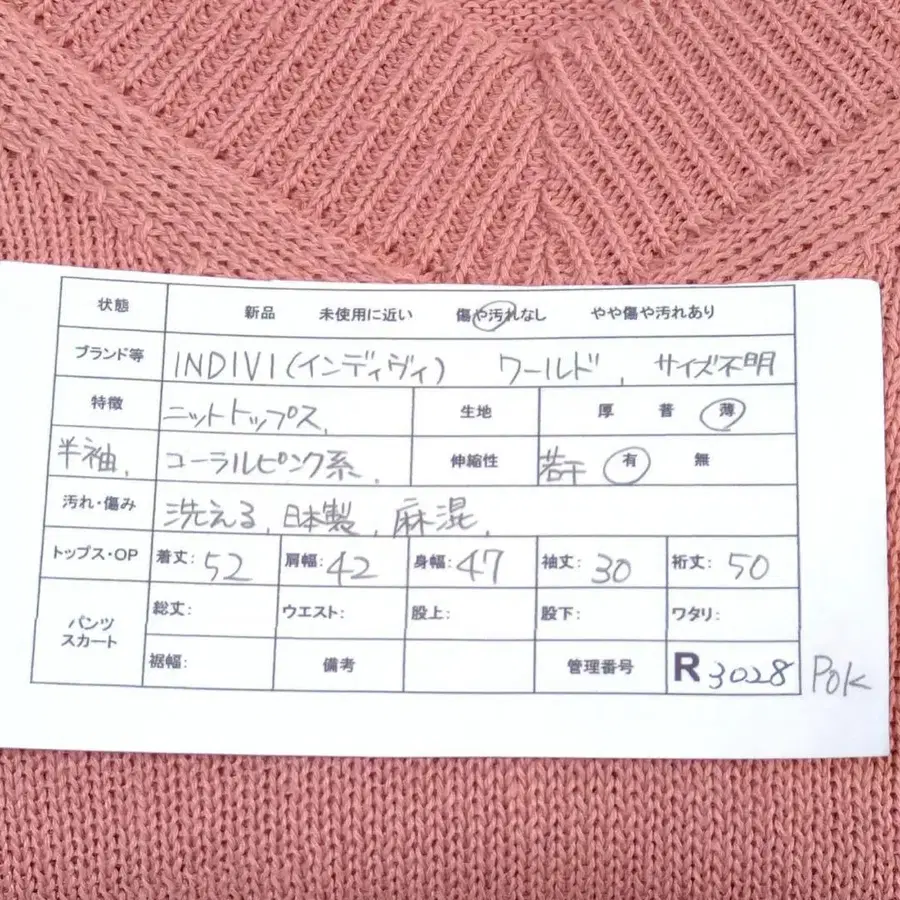 状態 新品 未使用に近い 傷や汚れなし やや傷や汚れあり
ブランド等 INDIVI(インディヴィ) ワールド, サイズ不明
特徴 ニットトップス, 生地 厚 普 薄
半袖, コーラルピンク系, 伸縮性 若干 有 無
汚れ・傷み 洗える, 日本製, 麻混,
トップス・OP 着丈: 52 肩幅: 42 身幅: 47 袖丈: 30 裄丈: 50
パンツ スカート 総丈: ウエスト: 股上: 股下: ワタリ:
裾幅: 備考 管理番号 R 3028 POK